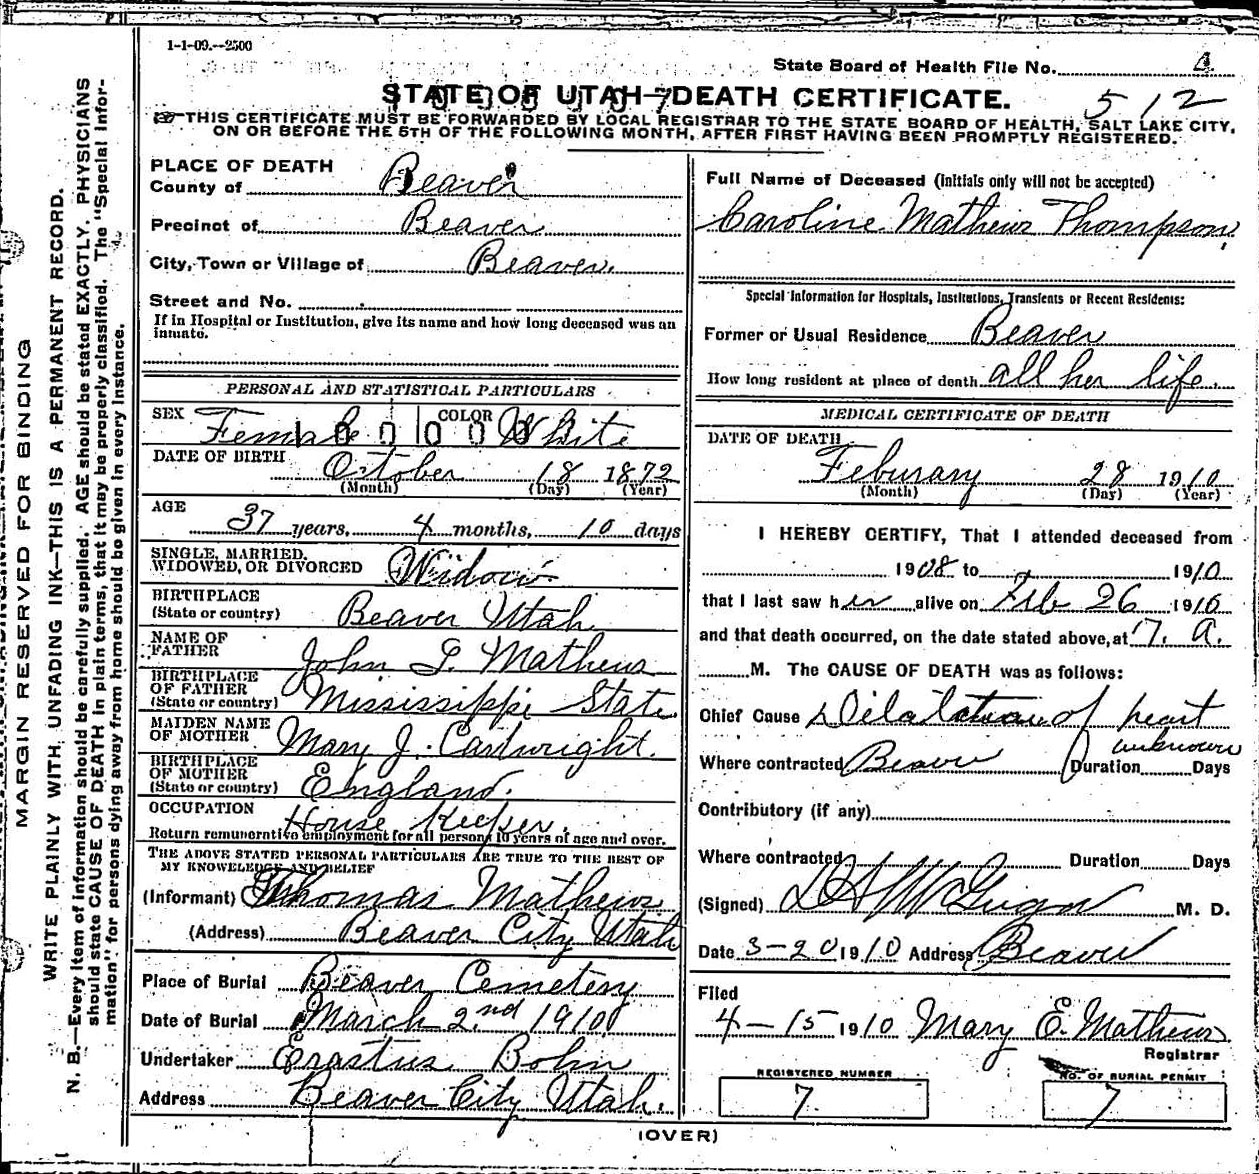 1-1-09.--2500
State Board of Health File No. 512
STATE OF UTAH—DEATH CERTIFICATE.
THIS CERTIFICATE MUST BE FORWARDED BY LOCAL REGISTRAR TO THE STATE BOARD OF HEALTH, SALT LAKE CITY,
ON OR BEFORE THE 5TH OF THE FOLLOWING MONTH, AFTER FIRST HAVING BEEN PROMPTLY REGISTERED.
MARGIN RESERVED FOR BINDING
WRITE PLAINLY WITH UNFADING INK—THIS IS A PERMANENT RECORD.
N. B.—Every item of information should be carefully supplied. AGE should be stated EXACTLY. PHYSICIANS
should state CAUSE OF DEATH in plain terms, that it may be properly classified. The "Special Infor-
mation" for persons dying away from home should be given in every instance.
PLACE OF DEATH
County of Beaver
Precinct of Beaver
City, Town or Village of Beaver.
Street and No.
If in Hospital or Institution, give its name and how long deceased was an
inmate.
PERSONAL AND STATISTICAL PARTICULARS
SEX Female COLOR White
DATE OF BIRTH October 18 1872
(Month) (Day) (Year)
AGE 37 years, 4 months, 10 days
SINGLE, MARRIED,
WIDOWED, OR DIVORCED Widow
BIRTHPLACE
(State or country) Beaver Utah
NAME OF
FATHER John L. Mathews
BIRTHPLACE
OF FATHER
(State or country) Mississippi State
MAIDEN NAME
OF MOTHER Mary J. Cartwright.
BIRTHPLACE
OF MOTHER
(State or country) England.
OCCUPATION House Keeper.
Return remunerative employment for all persons 10 years of age and over.
THE ABOVE STATED PERSONAL PARTICULARS ARE TRUE TO THE BEST OF
MY KNOWELEDGE AND BELIEF
(Informant) Thomas Mathews
(Address) Beaver City Utah
Place of Burial Beaver Cemetery
Date of Burial March 2nd 1910
Undertaker Erastus Bohn
Address Beaver City Utah.
Full Name of Deceased (Initials only will not be accepted)
Caroline Mathews Thompson
Special Information for Hospitals, Institutions, Transients or Recent Residents:
Former or Usual Residence Beaver
How long resident at place of death all her life.
MEDICAL CERTIFICATE OF DEATH
DATE OF DEATH
Feburary 28 1910
(Month) (Day) (Year)
I HEREBY CERTIFY, That I attended deceased from
1908 to 1910
that I last saw her alive on Feb 26 1910
and that death occurred, on the date stated above, at 7. a.
M. The CAUSE OF DEATH was as follows:
Chief Cause Dilatation of heart
Where contracted Beaver Duration unknown Days
Contributory (if any)
Where contracted Duration Days
(Signed) M. D.
Date 3-20 1910 Address Beaver
Filed
4-15 1910 Mary E. Mathews
Registrar
REGISTERED NUMBER
7
NO. OF BURIAL PERMIT
7
(OVER)